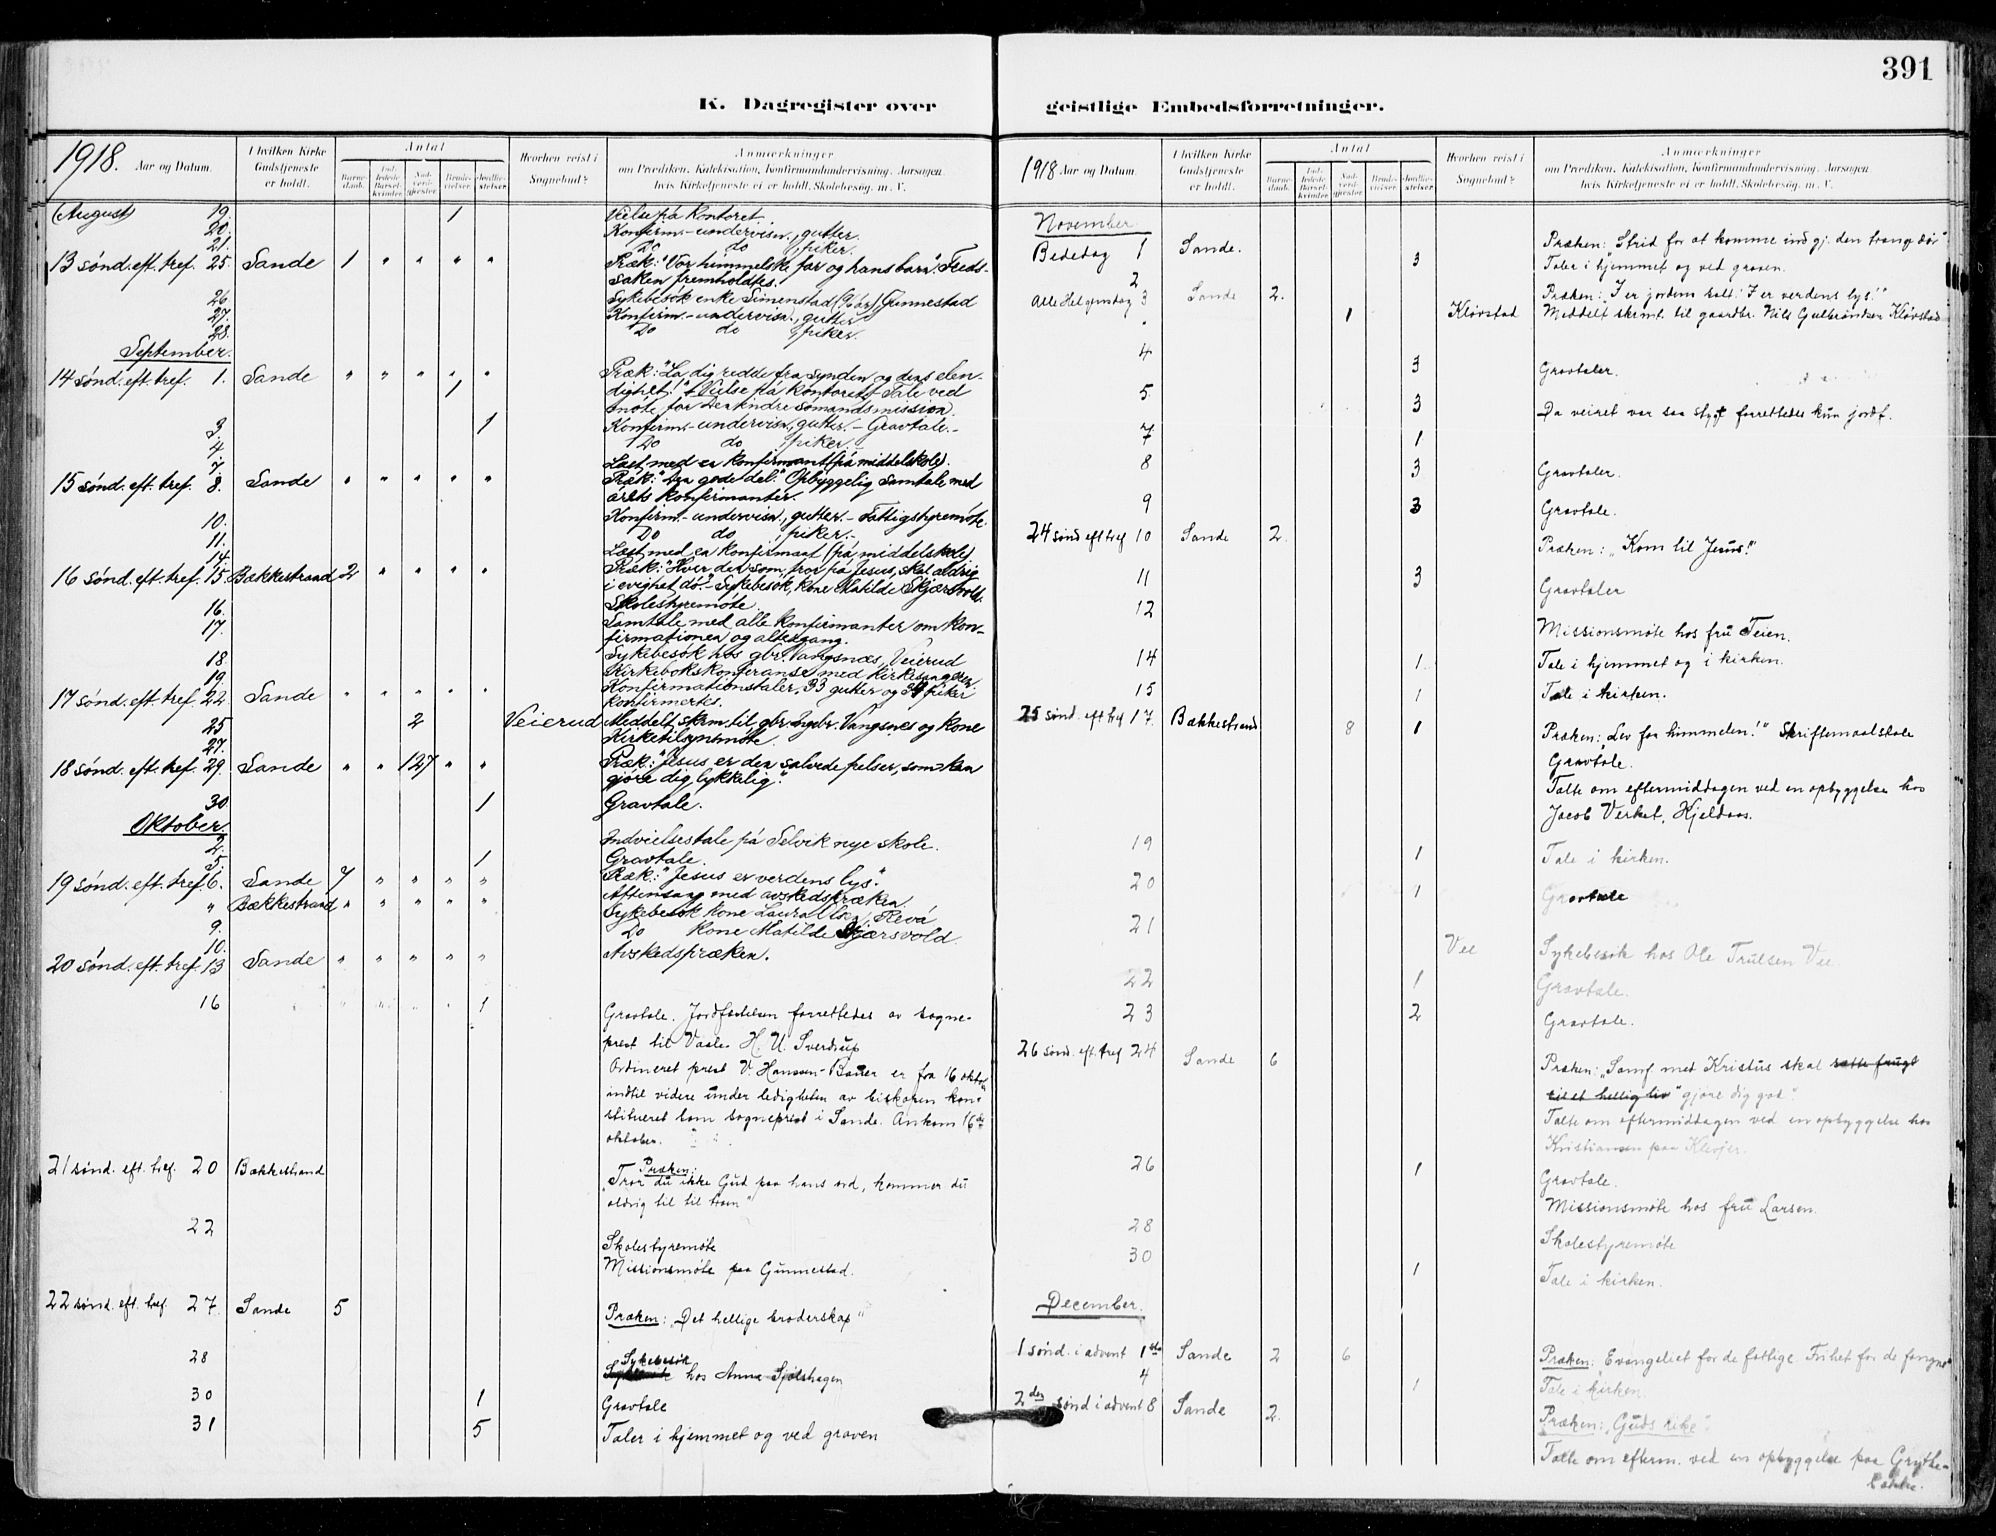 391
K. Dagregister over
geistlige Embedsforretninger.
1918. Aar og Datum.
I hvilken Kirke Gudstjeneste er holdt.
Antal
Barnedaab.
Indledede Barselkvinder.
Nadverdigjester.
Brudevielser.
Jordfæstelser.
Hvorhen reist i Sognebud?
Anmærkninger
om Prædiken, Katekisation, Konfirmandundervisning, Aarsagen, hvis Kirketjeneste ei er holdt, Skolebesøg, m. V.
(August) 19. 1 Vielse på kontoret
20. Konfirm.-undervisn., gutter.
21. Do do , piker.
13 sønd. eft. tref. 25. Sande 1 " " " " Præk: "Vor himmelske far og hans barn". Freds-
saken fremholdtes.
26. Sykebesøk enke Simenstad (96 år), Gunnestad
27. Konfirm.-undervisn., gutter
28. Do do , piker.
September.
14 sønd. eft. tref. 1. Sande " " " " " Præk: "La dig redde fra synden og dens elen-
dighet!" 1 Vielse på kontoret. Tale ved
møte for Den indre sømandsmission.
3. 1 Konfirm.-undervisn., gutter. – Gravtale.-
4. Do do , piker. –
7. Læst med en konfirmant (på middelskole).
15 sønd. eft. tref. 8. Sande " " " " " Præk: "Den gode del." Opbyggelig samtale med
årets konfirmanter.
10. Konfirm.-undervisn., gutter. – Fattigstyremøte.
11. Do do , piker. –
14. Læst med en konfirmant (på middelskole)
16 sønd. eft. tref. 15. Bækkestrand 2 " " " " Præk: "Hver den som tror på Jesus, skal aldrig
i evighet dø." – Sykebesøk, kone Matilde Skjærsvold.
16. Skolestyremøte.
17. Samtale med alle konfirmanter om kon-
firmationen og altergang.
18. Sykebesøk hos gbr. Vangsnæs, Veierud
19. Kirkebokskonferanse med kirkesangeren
17 sønd. eft. tref. 22. Sande " " " " " Konfirmationstaler, 33 gutter og 34 piker
konfirmertes.
25 2 Veierud Meddelt skrm. til gbr. Ingbr. Vangsnes og kone
27. Kirketilsynsmøte.
18 sønd. eft. tref. 29. Sande " " 127 " " Præk: "Jesus er den salvede frelser, som kan
gjøre dig lykkelig".
30. 1 Gravtale.
Oktober.
2. Indvielsestale på Selvik nye skole.
5. 1 Gravtale.
19 sønd. eft. tref. 6. Sande 7 " " " " Præk: "Jesus er verdens lys".
" Bækkestrand " " " " " Aftensang med avskedspræken.
9. Sykebesøk kone Laura Olsen, Revå
10. Do kone Matilde Skjærsvold.
20 sønd. eft. tref. 13 Sande " " " " " Avskedspræken.
16 " " " " 1 Gravtale. Jordfæstelsen forrettedes av sogne-
prest til Vaale H. U. Sverdrup
Ordineret prest V. Hansson-Bauer er fra 16 oktober
indtil videre under ledigheten av biskopen kon-
stitueret som sogneprest i Sande. Ankom 16de
oktober.
21 sønd. eft. tref. 20 Bækkestrand Præken:
"Tror du ikke Gud paa hans ord, kommer du
aldrig til til tro"
22
Skolestyremøte
Missionsmøte paa Gunnestad.
22 sønd. eft. tref. 27. Sande 5
Præken: "Det hellige broderskap"
28 Sykebesøk
hos Anna Sjølshagen
30 1 Gravtale
31 5 Taler i hjemmet og ved graven
1918 Aar og Datum.
I hvilken Kirke Gudstjeneste er holdt.
Antal
Barnedaab.
Indledede Barselkvinder.
Nadverdigjester.
Brudevielser.
Jordfæstelser.
Hvorhen reist i Sognebud?
Anmærkninger
om Prædiken, Katekisation, Konfirmandundervisning, Aarsagen, hvis Kirketjeneste ei er holdt, Skolebesøg, m. V.
November
Bededag 1 Sande. Præken: "Strid for at komme ind gj. den trange dør"
2 3 Taler i hjemmet og ved graven.
Alle Helgensdag 3 Sande 2. Præken: "I er jordens salt! I er verdens lys!"
" 1 Kløvstad Meddelt skrmt. til gaardbr. Nils Gulbrandsen Kløvstad
4 3 Gravtaler.
5. 3 Da veiret var saa stygt forrettedes kun jordf.
7 1
8 3 Gravtaler.
9 3 Gravtale.
24 sønd eft tref 10 Sande 2. Præken: "Kom til Jesus!"
11 3 Gravtaler
12 Missionsmøte hos fru Teien.
14 1 Tale i hjemmet og i kirken.
15 1 Tale i kirken.
25 sønd. eft tref 17. Bækkestrand 8 1 Præken: "Lev for himmelen!" Skriftemaalstale
Gravtale.
Talte om eftermiddagen ved en opbyggelse hos
Jacob Verket, Hjeldaas.
19 1 Tale i kirken.
20 1 Gravtale
21 Vee Sykebesøk hos Ole Trulsen Vee
22 1 Gravtale.
23 2 Gravtale.
26 sønd. eft. tref 24 Sande 6 Præken: "Samf med Kristus skal sætte frugt
til et hellig liv" gjøre dig god".
Talte om eftermiddagen ved en opbyggelse hos
Kristiansen paa Klevjer.
26 1 Gravtale.
Missionsmøte hos fru Larsen.
28 Skolestyremøte
30 1 Tale i kirken.
December.
1 sønd. i advent 1ste Sande 2 6 Præken: "Evangeliet for de fattige. Frihet for de fangne"
4 1 Tale i kirken.
2den sønd i advent 8 Sande 2. Præken: "Guds rike".
Talte om efterm. ved en opbyggelse paa Grythe-